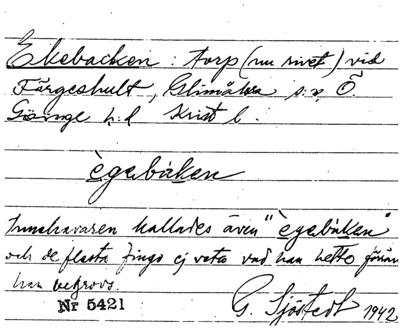 Ekebacken : torp (nu rivet) vid
Färgeshult, Glimåkra sn, Ö.
Göinge h:d Krist l.
ègebàken
Innehavaren kallades även "ègebàken"
och de flesta fingo ej veta vad han hette förrän
han begrovs.
Nr 5421
G. Sjöstedt 1942